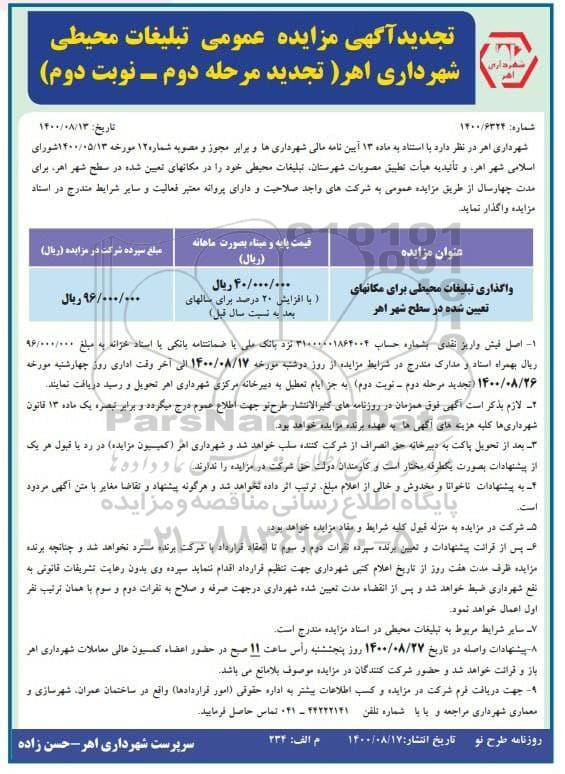 تجدیدآگهی مزایده عمومی تبلیغات محیطی
شهرداری اهر( تجدید مرحله دوم ــ نوبت دوم)
شهرداری
اهر
شماره: ۱۴۰۰/۶۳۲۴
تاریخ: ۱۴۰۰/۰۸/۱۳
شهرداری اهر در نظر دارد با استناد به ماده ۱۳ آیین نامه مالی شهرداری ها و برابر مجوز و مصوبه شماره۱۲ مورخه ۱۴۰۰/۰۵/۱۳شورای
اسلامی شهر اهر، و تأئیدیه هیأت تطبیق مصوبات شهرستان، تبلیغات محیطی خود را در مکانهای تعیین شده در سطح شهر اهر، برای
مدت چهارسال از طریق مزایده عمومی به شرکت های واجد صلاحیت و دارای پروانه معتبر فعالیت و سایر شرایط مندرج در اسناد
مزایده واگذار نماید.
عنوان مزایده
قیمت پایه و مبناء بصورت ماهانه
(ریال)
مبلغ سپرده شرکت در مزایده (ریال)
واگذاری تبلیغات محیطی برای مکانهای
تعیین شده در سطح شهر اهر
۴۰/۰۰۰/۰۰۰ ریال
( با افزایش ۲۰ درصد برای سالهای
بعد به نسبت سال قبل)
۹۶/۰۰۰/۰۰۰ ریال
۱- اصل فیش واریز نقدی بشماره حساب ۳۱۰۰۰۰۰۱۸۶۴۰۰۴ نزد بانک ملی یا ضمانتنامه بانکی یا اسناد خزانه به مبلغ ۹۶/۰۰۰/۰۰۰
ریال بهمراه اسناد و مدارک مندرج در شرایط مزایده از روز دوشنبه مورخه ۱۴۰۰/۰۸/۱۷ الی آخر وقت اداری روز چهارشنبه مورخه
۱۴۰۰/۰۸/۲۶ (تجدید مرحله دوم ــ نوبت دوم) به جز ایام تعطیل به دبیرخانه مرکزی شهرداری اهر تحویل و رسید دریافت نمایند.
۲ــ لازم بذکر است آگهی فوق همزمان در روزنامه های کثیرالانتشار طرح‌نو جهت اطلاع عموم درج میگردد و برابر تبصره یک ماده ۱۳ قانون
شهرداری‌ها کلیه هزینه های آگهی ها به عهده برنده مزایده خواهد بود.
۳ــ بعد از تحویل پاکت به دبیرخانه حق انصراف از شرکت کننده سلب خواهد شد و شهرداری اهر (کمیسیون مزایده) در رد یا قبول هر یک
از پیشنهادات بصورت یکطرفه مختار است و کارمندان دولت حق شرکت در مزایده را ندارند.
۴ــ به پیشنهادات ناخوانا و مخدوش و خالی از اعلام مبلغ، ترتیب اثر داده نخواهد شد و هرگونه پیشنهاد و تقاضا مغایر با متن آگهی مردود
است.
۵ــ شرکت در مزایده به منزله قبول کلیه شرایط و مفاد مزایده خواهد بود.
۶ــ پس از قرائت پیشنهادات و تعیین برنده سپرده نفرات دوم و سوم تا انعقاد قرارداد با شرکت برنده مسترد نخواهد شد و چنانچه برنده
مزایده ظرف مدت هفت روز از تاریخ اعلام کتبی شهرداری جهت تنظیم قرارداد اقدام ننماید سپرده وی بدون رعایت تشریفات قانونی به
نفع شهرداری ضبط خواهد شد و پس از انقضاء مدت تعیین شده شهرداری درجهت صرفه و صلاح به نفرات دوم و سوم با همان ترتیب نفر
اول اعمال خواهد نمود.
۷ــ سایر شرایط مربوط به تبلیغات محیطی در اسناد مزایده مندرج است.
۸-پیشنهادات واصله در تاریخ ۱۴۰۰/۰۸/۲۷ روز پنجشنبه رأس ساعت ۱۱ صبح در حضور اعضاء کمسیون عالی معاملات شهرداری اهر
باز و قرائت خواهد شد و حضور شرکت کنندگان در مزایده موصوف بلامانع می باشد.
۹- جهت دریافت فرم شرکت در مزایده و کسب اطلاعات بیشتر به اداره حقوقی (امور قراردادها) واقع در ساختمان عمران، شهرسازی و
معماری شهرداری مراجعه و یا با شماره تلفن ۴۴۲۲۲۱۴۱ ــ ۰۴۱ تماس حاصل فرمایید.
روزنامه طرح نو
تاریخ انتشار:۱۴۰۰/۰۸/۱۷
م الف: ۲۳۴
سرپرست شهرداری اهر–حسن زاده
ParsNamadData
پایگاه اطلاع رسانی مناقصه و مزایده
۰۲۱-۸۸۳۴۹۶۷۰-۵